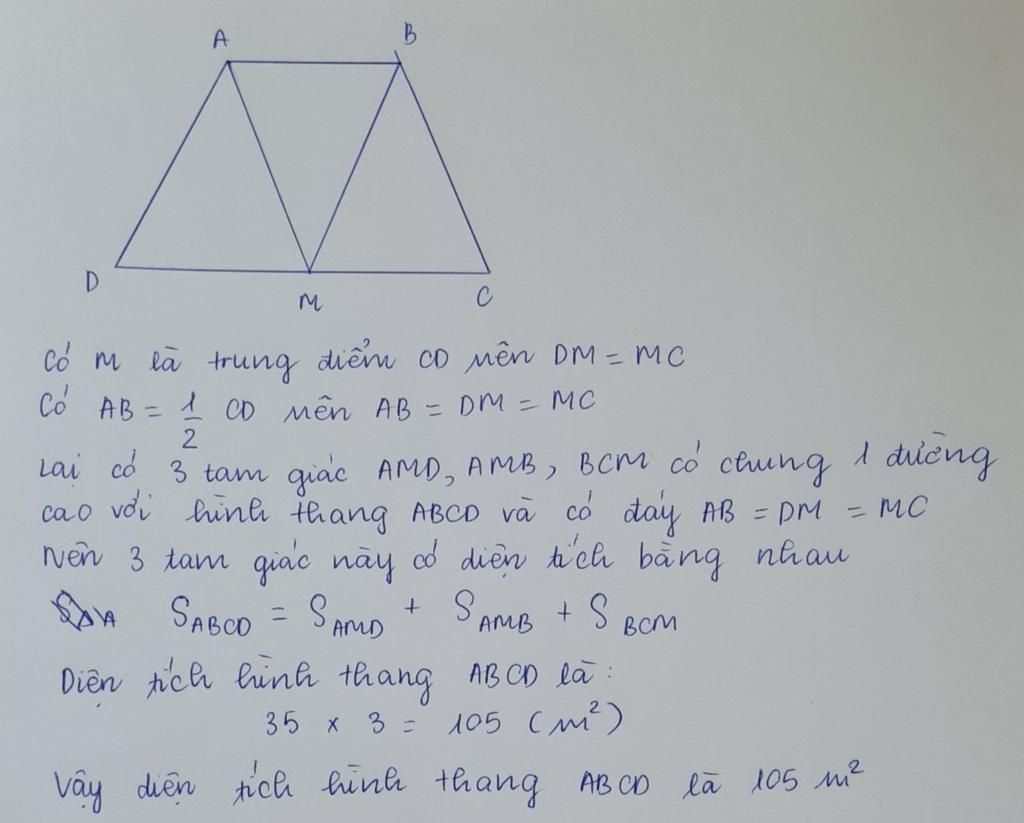 A B
D M C
Có M là trung điểm CD nên DM = MC
Có AB = 1/2 CD nên AB = DM = MC
Lại có 3 tam giác AMD, AMB, BCM có chung 1 đường
cao với hình thang ABCD và có đáy AB = DM = MC
Nên 3 tam giác này có diện tích bằng nhau
S_ABCD = S_AMD + S_AMB + S_BCM
Diện tích hình thang ABCD là:
35 x 3 = 105 (m²)
Vậy diện tích hình thang ABCD là 105 m²